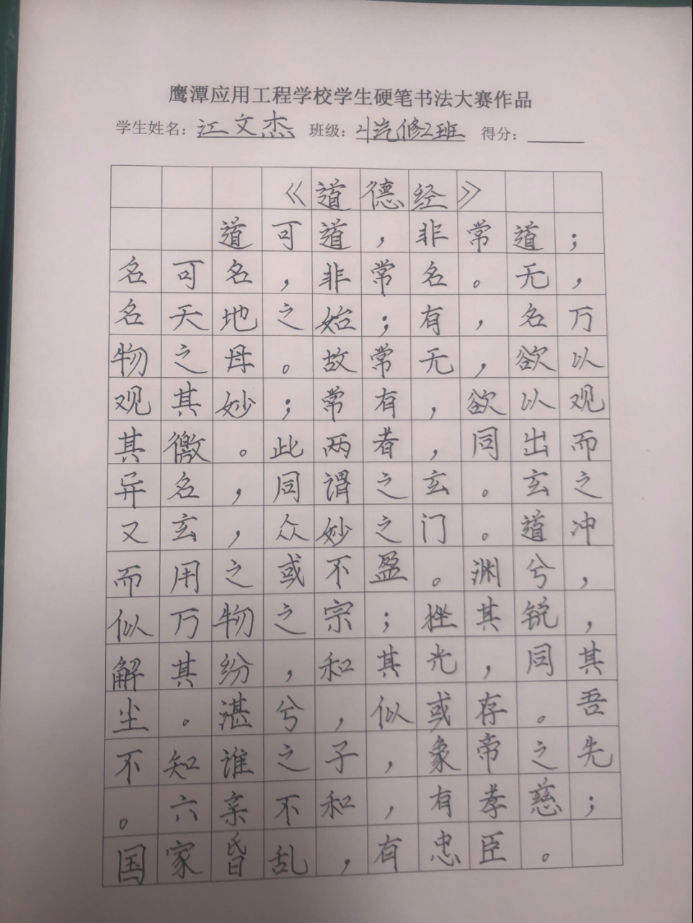 鹰潭应用工程学校学生硬笔书法大赛作品
学生姓名：江文杰 班级：汽修2班 得分：
《道德经》
道可道，非常道；
名可名，非常名。无，
名天地之始；有，名万
物之母。故常无，欲以
观其妙；常有，欲以观
其徼。此两者，同出而
异名，同谓之玄。玄之
又玄，众妙之门。道冲
而用之或不盈。渊兮，
似万物之宗；挫其锐，
解其纷，和其光，同其
尘。湛兮，似或存。吾
不知谁之子，象帝之先
。六亲不和，有孝慈；
国家昏乱，有忠臣。